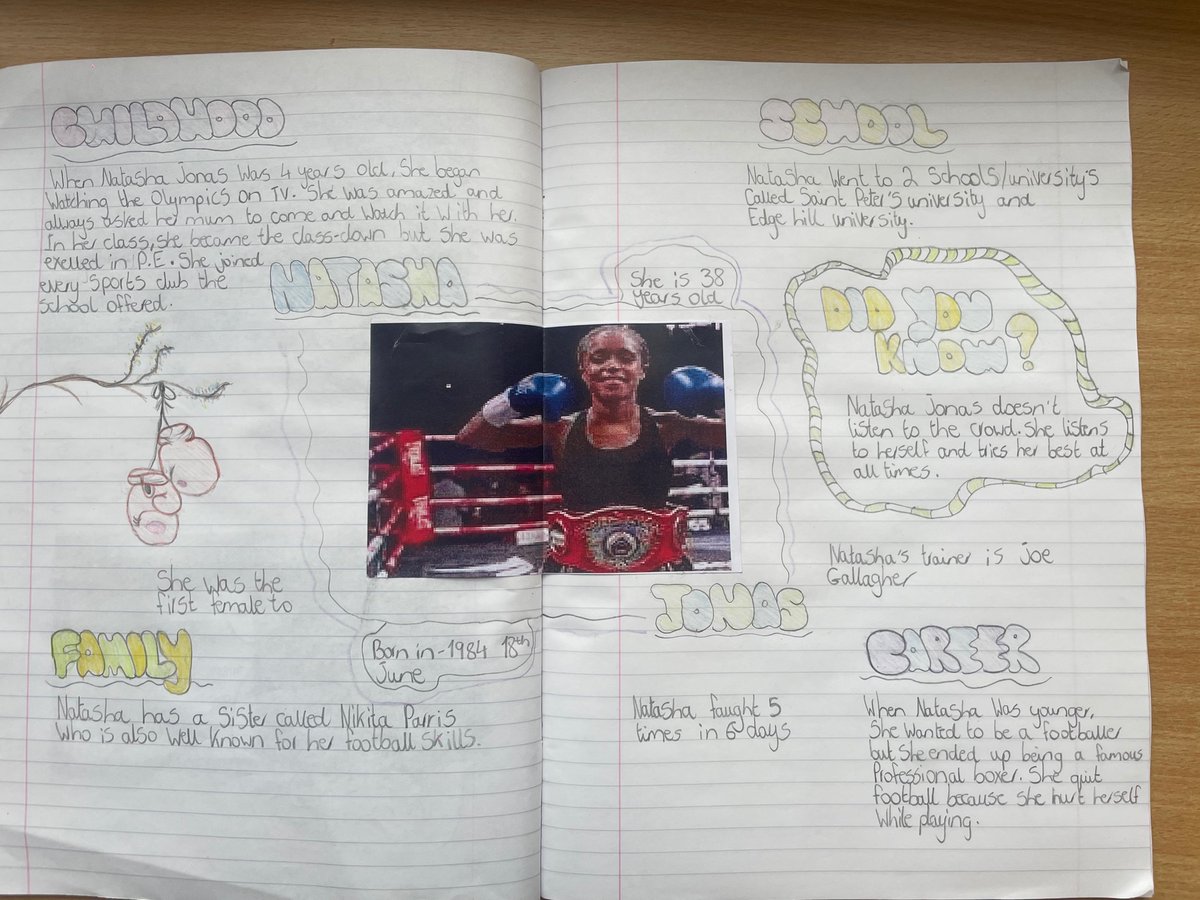 CHILDHOOD
When Natasha Jonas was 4 years old, She began
watching the Olympics on TV. She was amazed and
always asked her mum to come and watch it with her.
In her class, she became the class-clown but she was
exelled in P.E. She joined
every sports club the
school offered.
NATASHA
She was the
first female to
FAMILY
Natasha has a sister called Nikita Parris
who is also well known for her football skills.
Born in - 1984 18th
June
SCHOOL
Natasha went to 2 schools/university's
called Saint Peter's university and
Edge hill university.
She is 38
years old
DID YOU
KNOW?
Natasha Jonas doesn't
listen to the crowd. She listens
to herself and tries her best at
all times.
Natasha's trainer is Joe
Gallagher
JONAS
Natasha faught 5
times in 6 days
CAREER
When Natasha was younger,
She wanted to be a footballer
but she ended up being a famous
Professional boxer. She quit
football because she hurt herself
while playing.